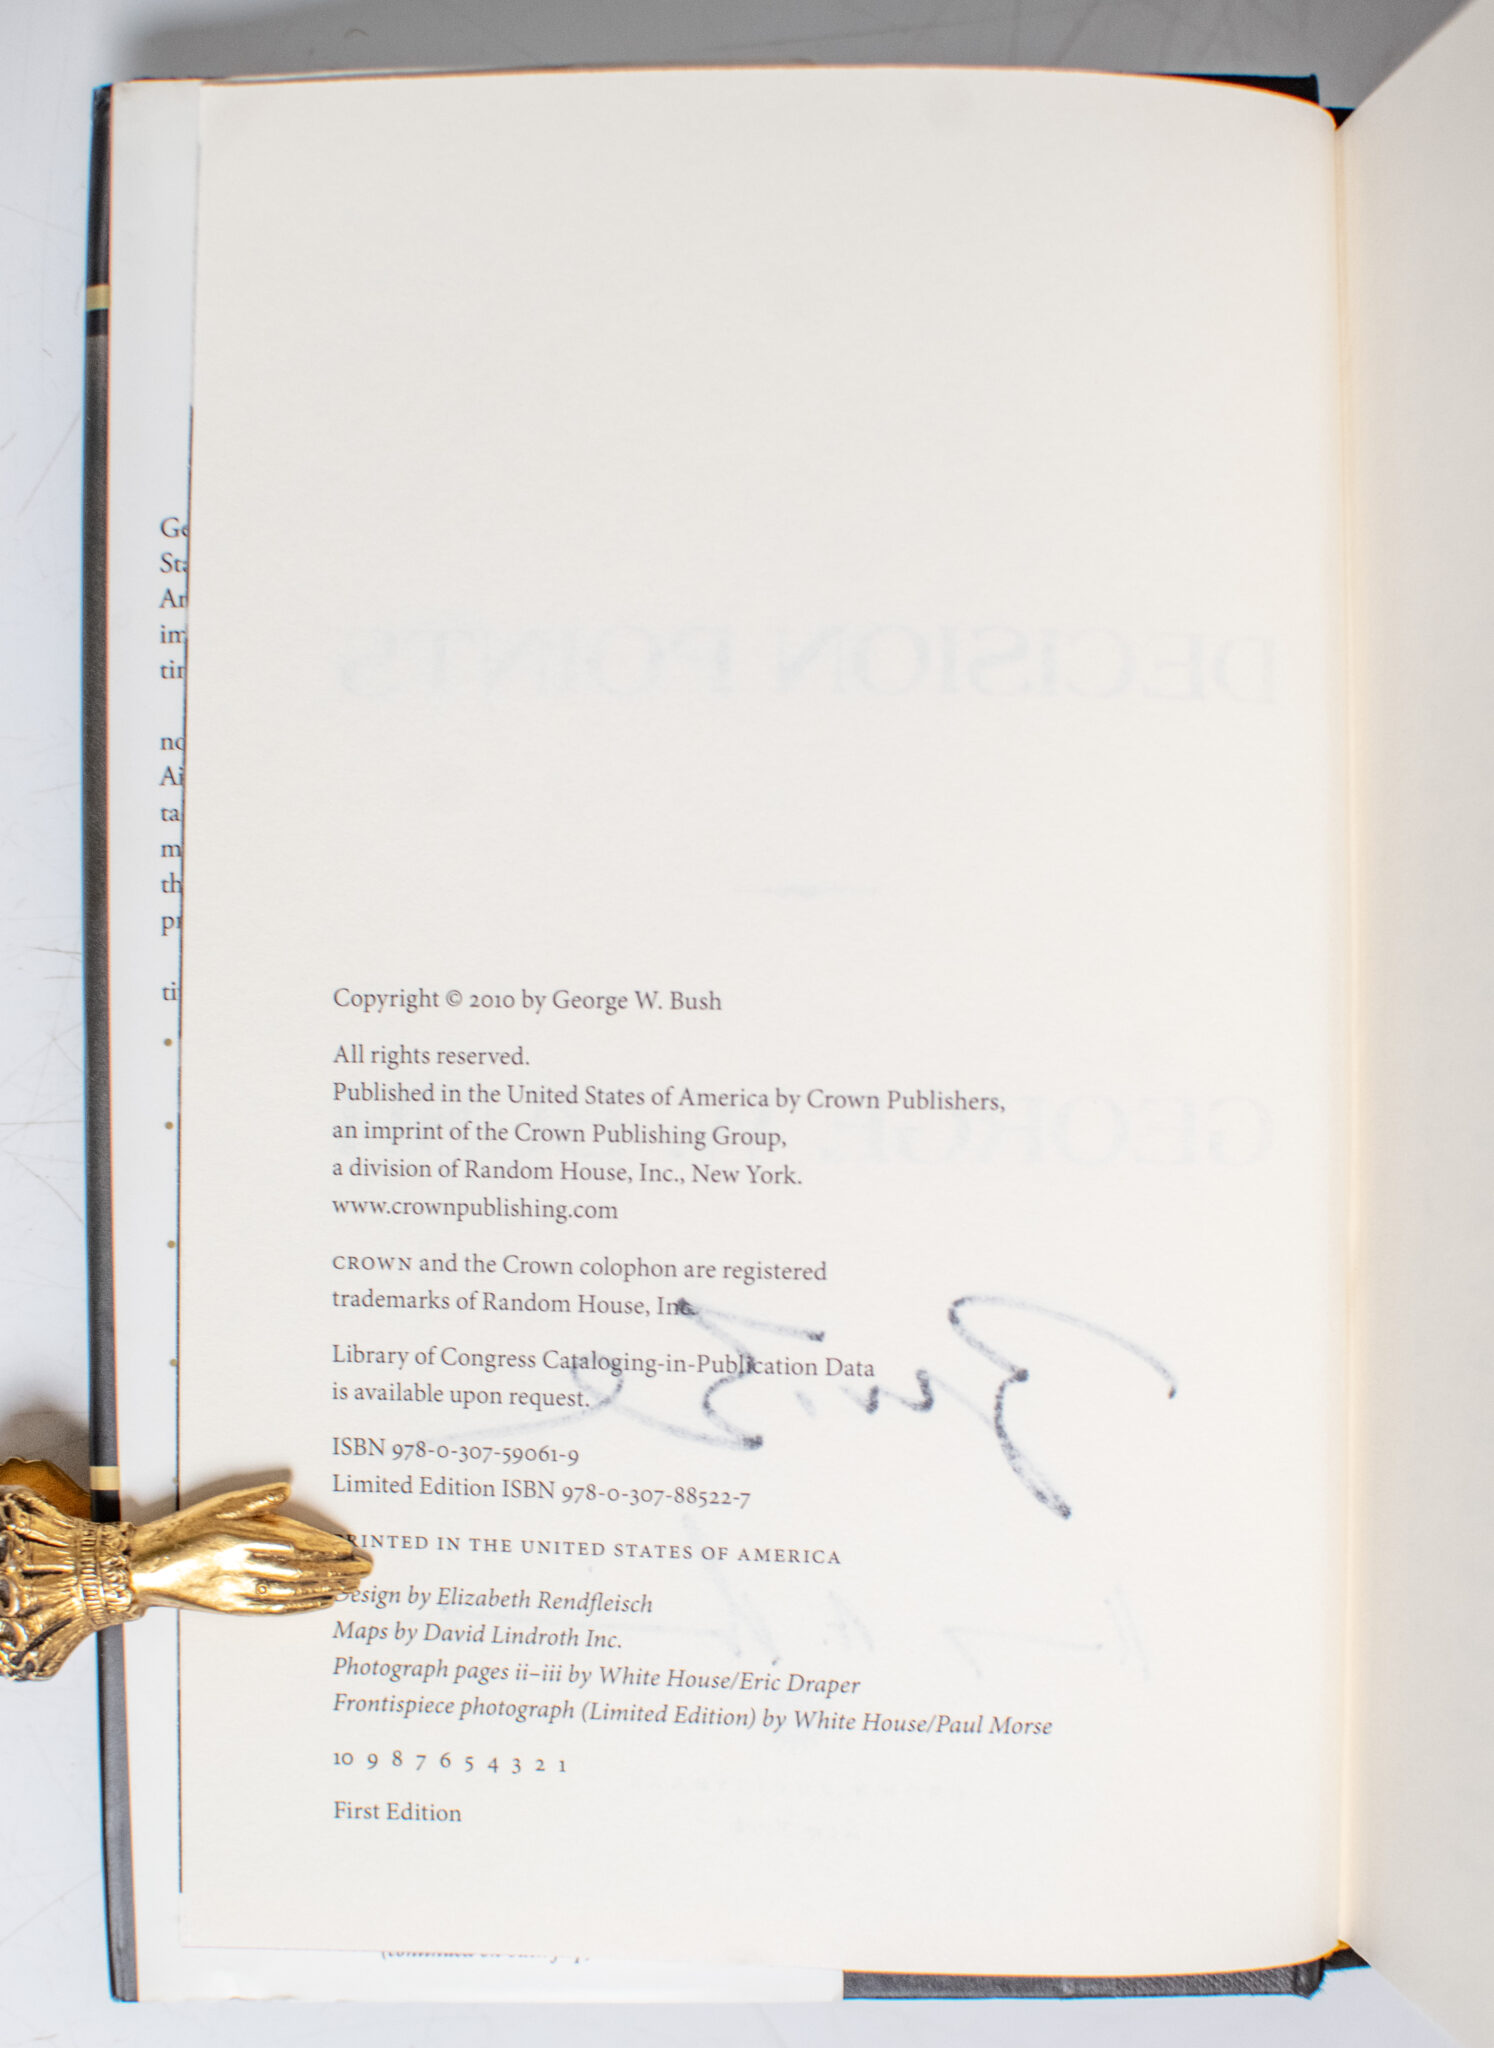 Copyright © 2010 by George W. Bush
All rights reserved.
Published in the United States of America by Crown Publishers,
an imprint of the Crown Publishing Group,
a division of Random House, Inc., New York.
www.crownpublishing.com
CROWN and the Crown colophon are registered
trademarks of Random House, Inc.
Library of Congress Cataloging-in-Publication Data
is available upon request.
ISBN 978-0-307-59061-9
Limited Edition ISBN 978-0-307-88522-7
PRINTED IN THE UNITED STATES OF AMERICA
Design by Elizabeth Rendfleisch
Maps by David Lindroth Inc.
Photograph pages ii–iii by White House/Eric Draper
Frontispiece photograph (Limited Edition) by White House/Paul Morse
10 9 8 7 6 5 4 3 2 1
First Edition
DECISION POINTS